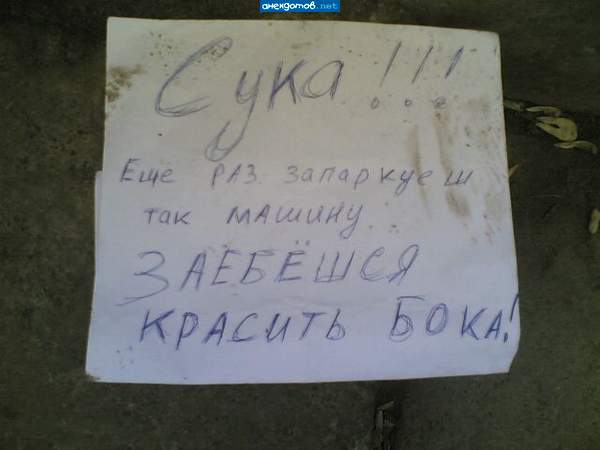 анекдотов.net
Сука!!!
Еще раз запаркуеш
так машину..
ЗАЕБЁШСЯ
КРАСИТЬ БОКА!